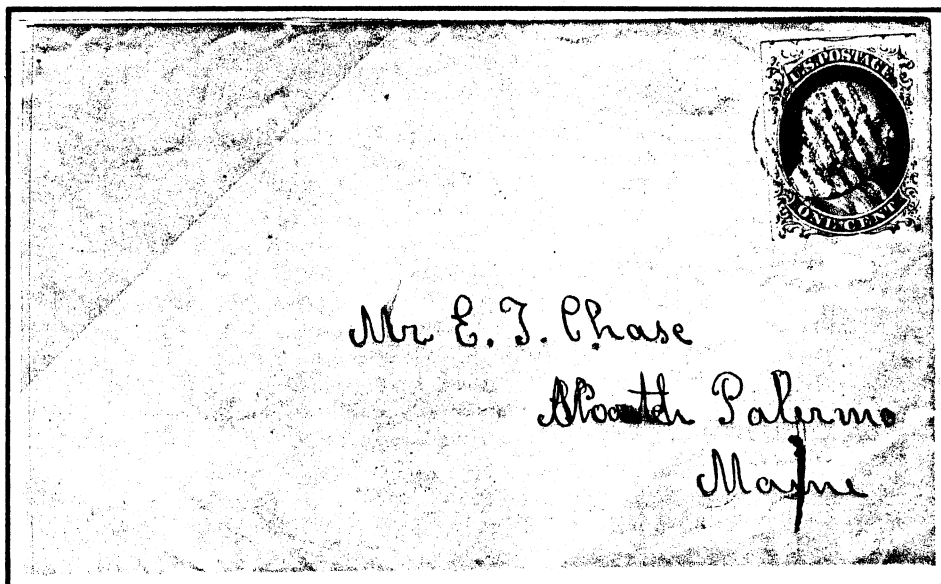 U.S. POSTAGE
ONE CENT
Mr E. T. Chase
North Palermo
Maine